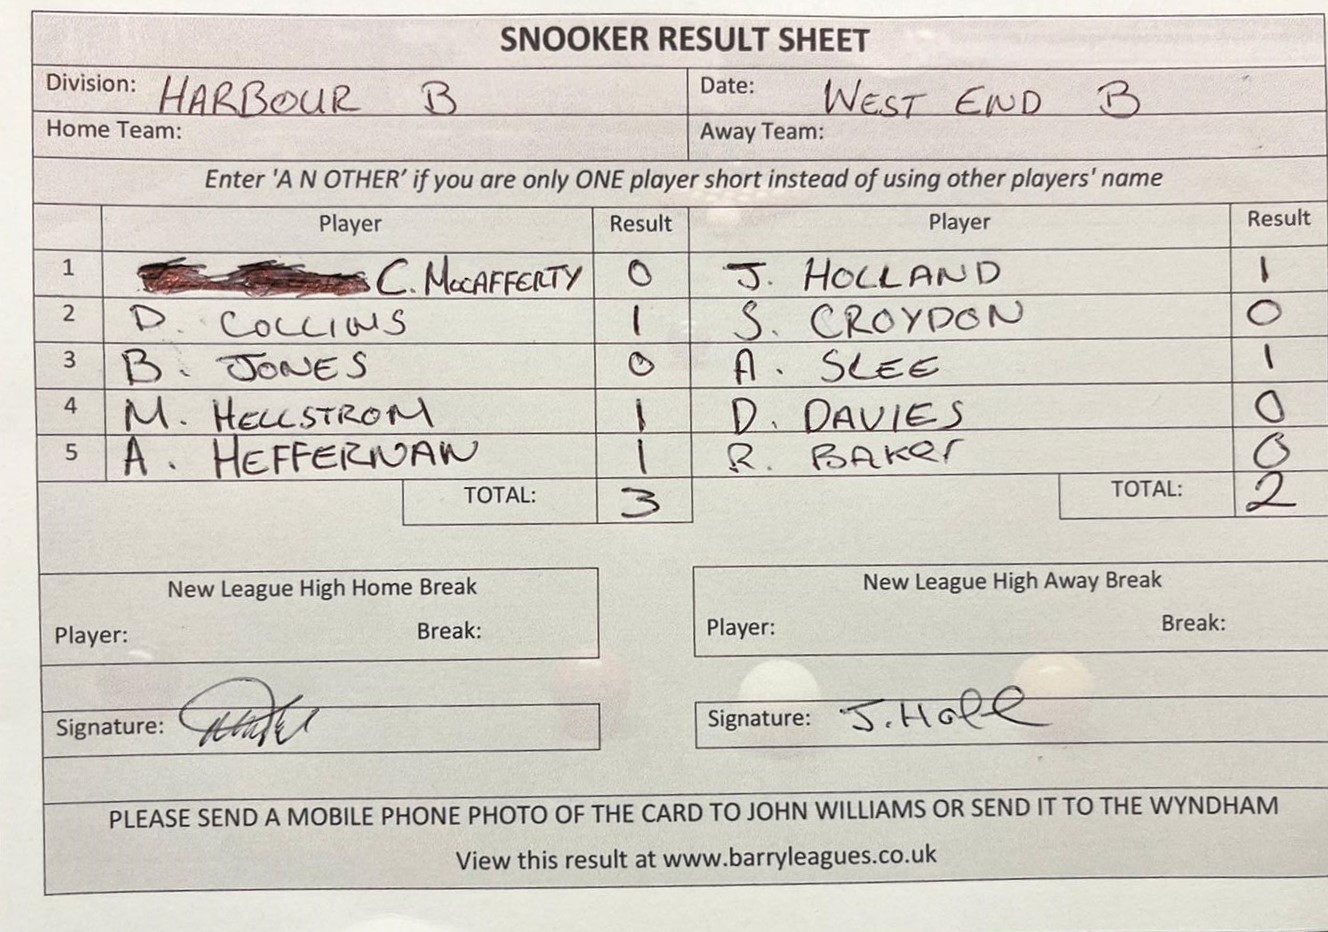 SNOOKER RESULT SHEET
Division: HARBOUR B Date: WEST END B
Home Team: Away Team:
Enter 'A N OTHER' if you are only ONE player short instead of using other players' name
Player Result Player Result
1 C. McCAFFERTY 0 J. HOLLAND 1
2 D. COLLINS 1 S. CROYDON 0
3 B. JONES 0 A. SLEE 1
4 M. HELLSTROM 1 D. DAVIES 0
5 A. HEFFERNAN 1 R. BAKER 0
TOTAL: 3 TOTAL: 2
New League High Home Break New League High Away Break
Player: Break: Player: Break:
Signature: Signature: J. Holl
PLEASE SEND A MOBILE PHONE PHOTO OF THE CARD TO JOHN WILLIAMS OR SEND IT TO THE WYNDHAM
View this result at www.barryleagues.co.uk